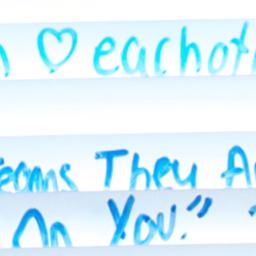 ♡ eachot
eams They A
On You."